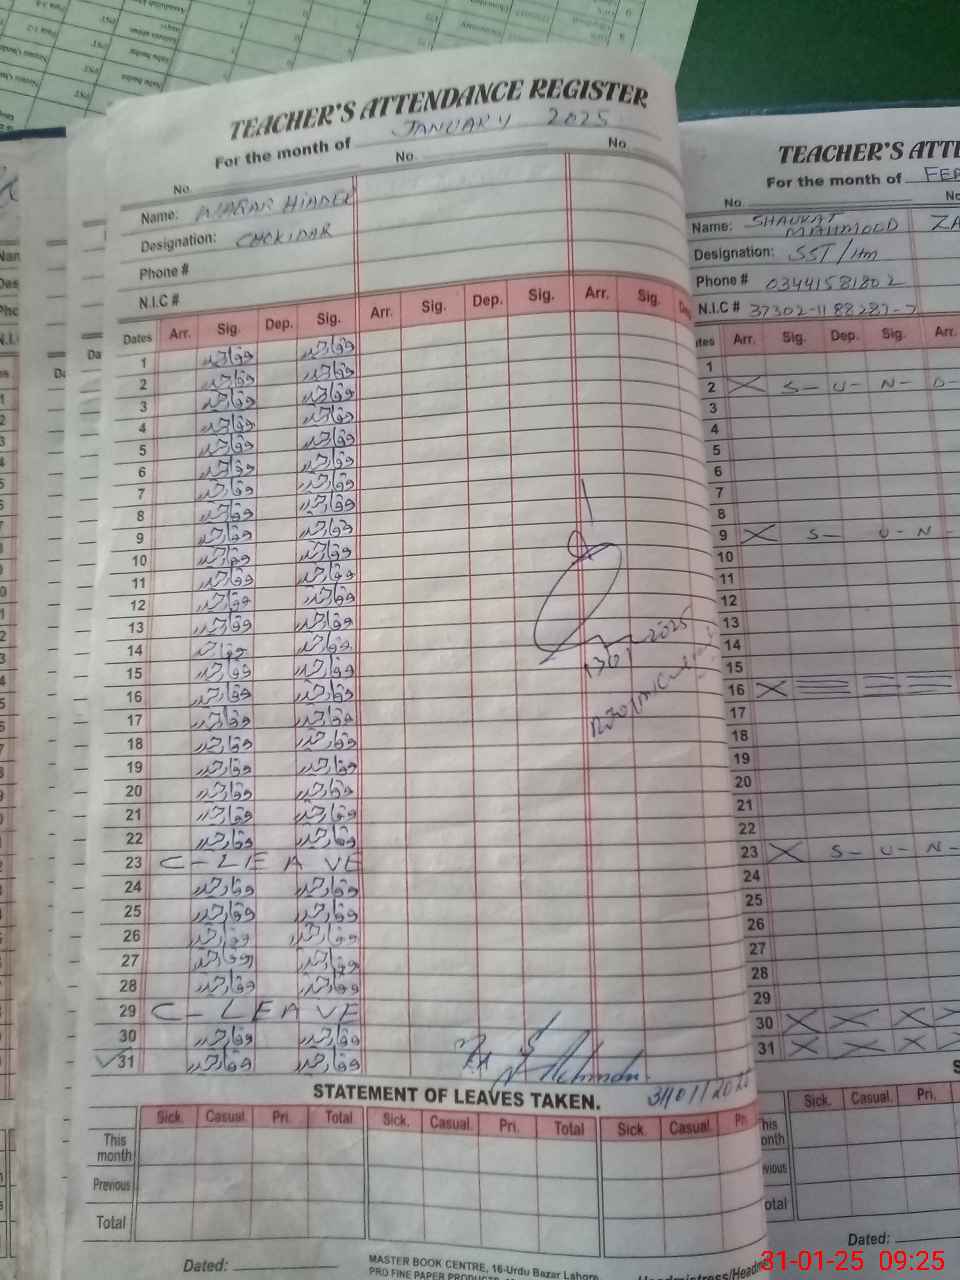 TEACHER'S ATTENDANCE REGISTER
For the month of JANUARY 2025
No. No. No.
Name: WAQAR HIADER
Designation: CHOKIDAR
Phone #
N.I.C #
Dates Arr. Sig. Dep. Sig. Arr. Sig. Dep. Sig. Arr. Sig.
1 وقار حیدر وقار حیدر
2 وقار حیدر وقار حیدر
3 وقار حیدر وقار حیدر
4 وقار حیدر وقار حیدر
5 وقار حیدر وقار حیدر
6 وقار حیدر وقار حیدر
7 وقار حیدر وقار حیدر
8 وقار حیدر وقار حیدر
9 وقار حیدر وقار حیدر
10 وقار حیدر وقار حیدر
11 وقار حیدر وقار حیدر
12 وقار حیدر وقار حیدر
13 وقار حیدر وقار حیدر
14 وقار حیدر وقار حیدر
15 وقار حیدر وقار حیدر
16 وقار حیدر وقار حیدر
17 وقار حیدر وقار حیدر
18 وقار حیدر وقار حیدر
19 وقار حیدر وقار حیدر
20 وقار حیدر وقار حیدر
21 وقار حیدر وقار حیدر
22 وقار حیدر وقار حیدر
23 C-LEAVE
24 وقار حیدر وقار حیدر
25 وقار حیدر وقار حیدر
26 وقار حیدر وقار حیدر
27 وقار حیدر وقار حیدر
28 وقار حیدر وقار حیدر
29 C-LEAVE
30 وقار حیدر وقار حیدر
31 وقار حیدر وقار حیدر
31/01/2025
STATEMENT OF LEAVES TAKEN.
Sick. Casual. Pri. Total Sick. Casual. Pri. Total Sick. Casual.
This month
Previous
Total
Dated:
MASTER BOOK CENTRE, 16-Urdu Bazar Lahore
TEACHER'S
For the month of
No.
Name: SHAUKAT MAHMOOD
Designation: SST/Hm
Phone # 03441581802
N.I.C #
Arr. Sig. Dep. Sig. Arr.
1
2 S-U-N-D-
3
4
5
6
7
8
9 S- U-N
10
11
12
13
14
15
16
17
18
19
20
21
22
23 S-U-N-
24
25
26
27
28
29
30
31
Sick. Casual. Pri.
Dated:
31-01-25 09:25